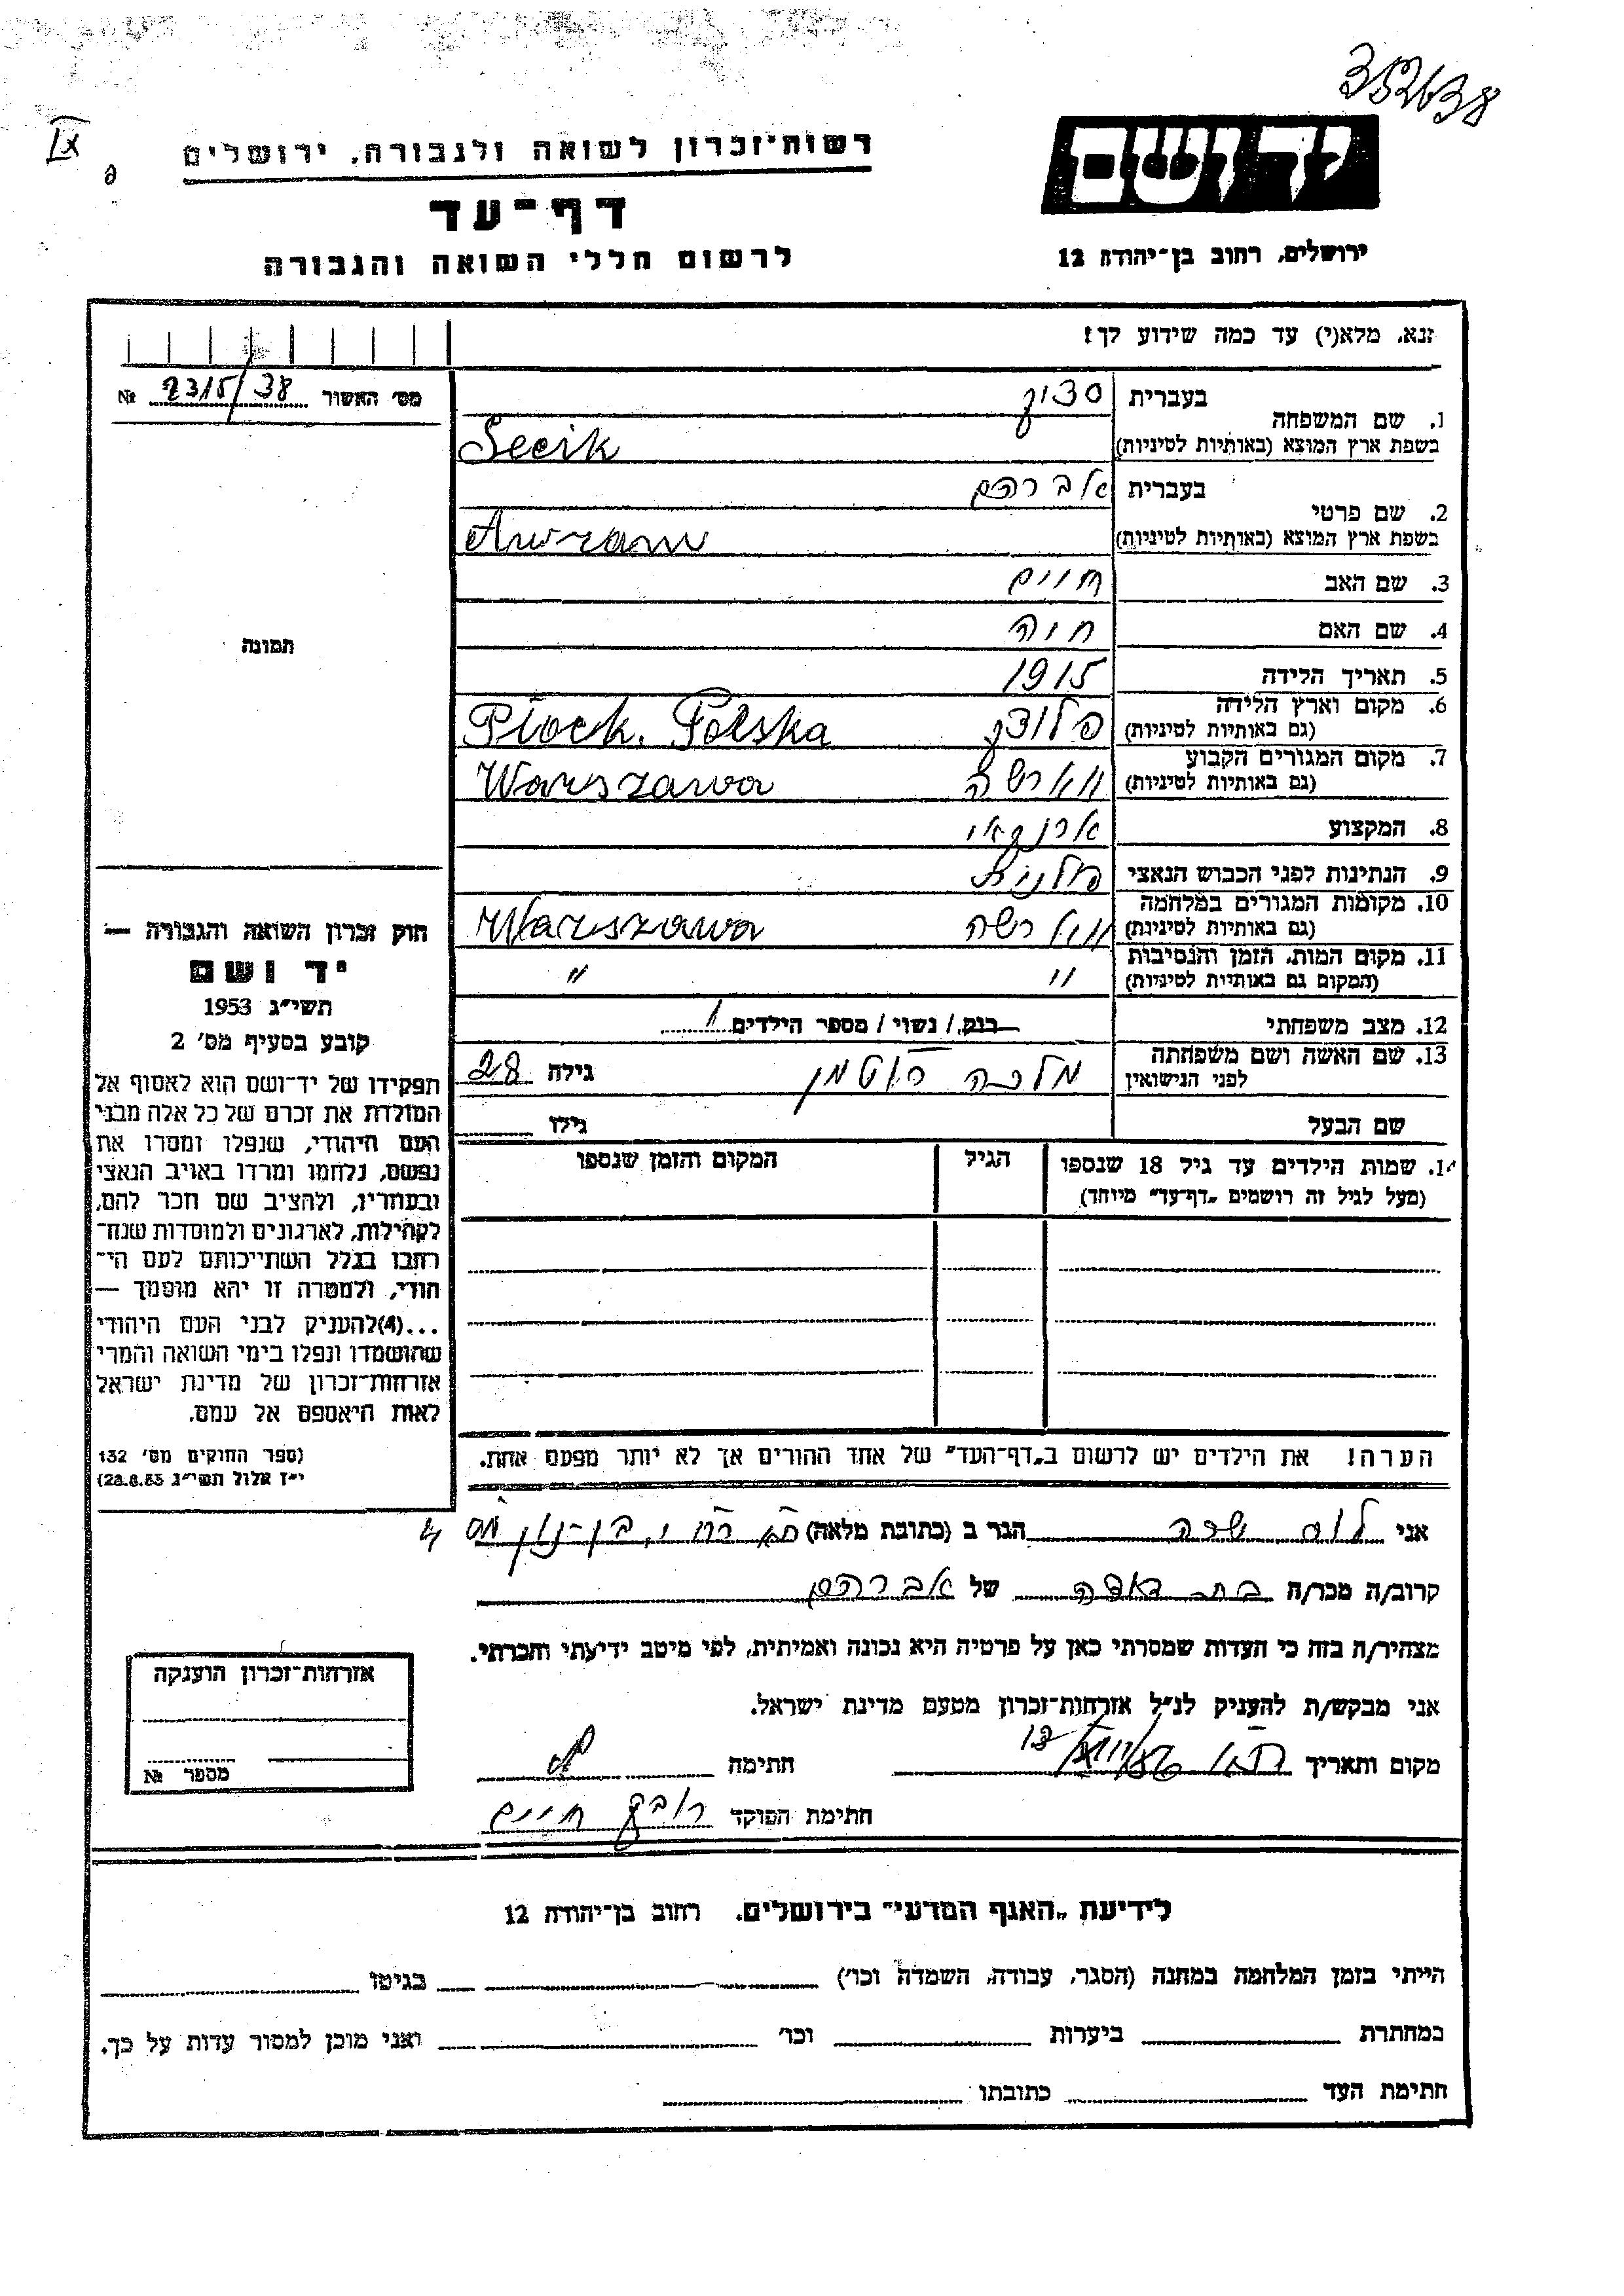 352638
IX
יד ושם
רשות־זכרון לשואה ולגבורה, ירושלים
דף־עד
לרשום חללי השואה והגבורה
ירושלים, רחוב בן־יהודה 12
נא, מלא(י) עד כמה שידוע לך:
מס׳ האשור 2315/38 №
תמונה
1. שם המשפחה
בעברית סציק
בשפת ארץ המוצא (באותיות לטיניות) Secik
2. שם פרטי
בעברית אברהם
בשפת ארץ המוצא (באותיות לטיניות) Awram
3. שם האב חיים
4. שם האם חוה
5. תאריך הלידה 1915
6. מקום וארץ הלידה
(גם באותיות לטיניות) פלוצק Płock. Polska
7. מקום המגורים הקבוע
(גם באותיות לטיניות) ווארשה Warszawa
8. המקצוע
9. הנתינות לפני הכבוש הנאצי פולנית
10. מקומות המגורים במלחמה
(גם באותיות לטיניות) ווארשה Warszawa
11. מקום המות, הזמן והנסיבות
(המקום גם באותיות לטיניות) " "
12. מצב משפחתי רווק / נשוי / מספר הילדים 1
13. שם האשה ושם משפחתה
לפני הנישואין מלכה גילה 28
שם הבעל גילו
14. שמות הילדים עד גיל 18 שנספו
(מעל לגיל זה רושמים „דף־עד" מיוחד)
הגיל
המקום והזמן שנספו
הערה! את הילדים יש לרשום ב„דף־העד" של אחד ההורים אך לא יותר מפעם אחת.
חוק זכרון השואה והגבורה —
יד ושם
תשי״ג 1953
קובע בסעיף מס׳ 2
תפקידו של יד־ושם הוא לאסוף אל
המולדת את זכרם של כל אלה מבני
העם היהודי, שנפלו ומסרו את
נפשם, נלחמו ומרדו באויב הנאצי
ובעוזריו, ולהציב שם וזכר להם,
לקהילות, לארגונים ולמוסדות שנח־
רבו בגלל השתייכותם לעם הי־
הודי, ולמטרה זו יהא מוסמך —
...(4)להעניק לבני העם היהודי
שהושמדו ונפלו בימי השואה והמרי
אזרחות־זכרון של מדינת ישראל
לאות היאספם אל עמם.
(ספר החוקים מס׳ 132
י״ז אלול תשי״ג 28.8.53)
אני שרה הגר ב (כתובת מלאה) בן־נון מס 4
קרוב/ה מכר/ה בת דודה של אברהם
מצהיר/ה בזה כי העדות שמסרתי כאן על פרטיה היא נכונה ואמיתית, לפי מיטב ידיעתי והכרתי.
אני מבקש/ת להעניק לנ״ל אזרחות־זכרון מטעם מדינת ישראל.
מקום ותאריך חתימה
חתימת הפוקד חיים
אזרחות־זכרון הוענקה
מספר №
לידיעת „האגף המדעי" בירושלים, רחוב בן־יהודה 12
הייתי בזמן המלחמה במחנה (הסגר, עבודה, השמדה וכו׳) בגיטו
במחתרת ביערות וכו׳ ואני מוכן למסור עדות על כך.
חתימת העד כתובתו